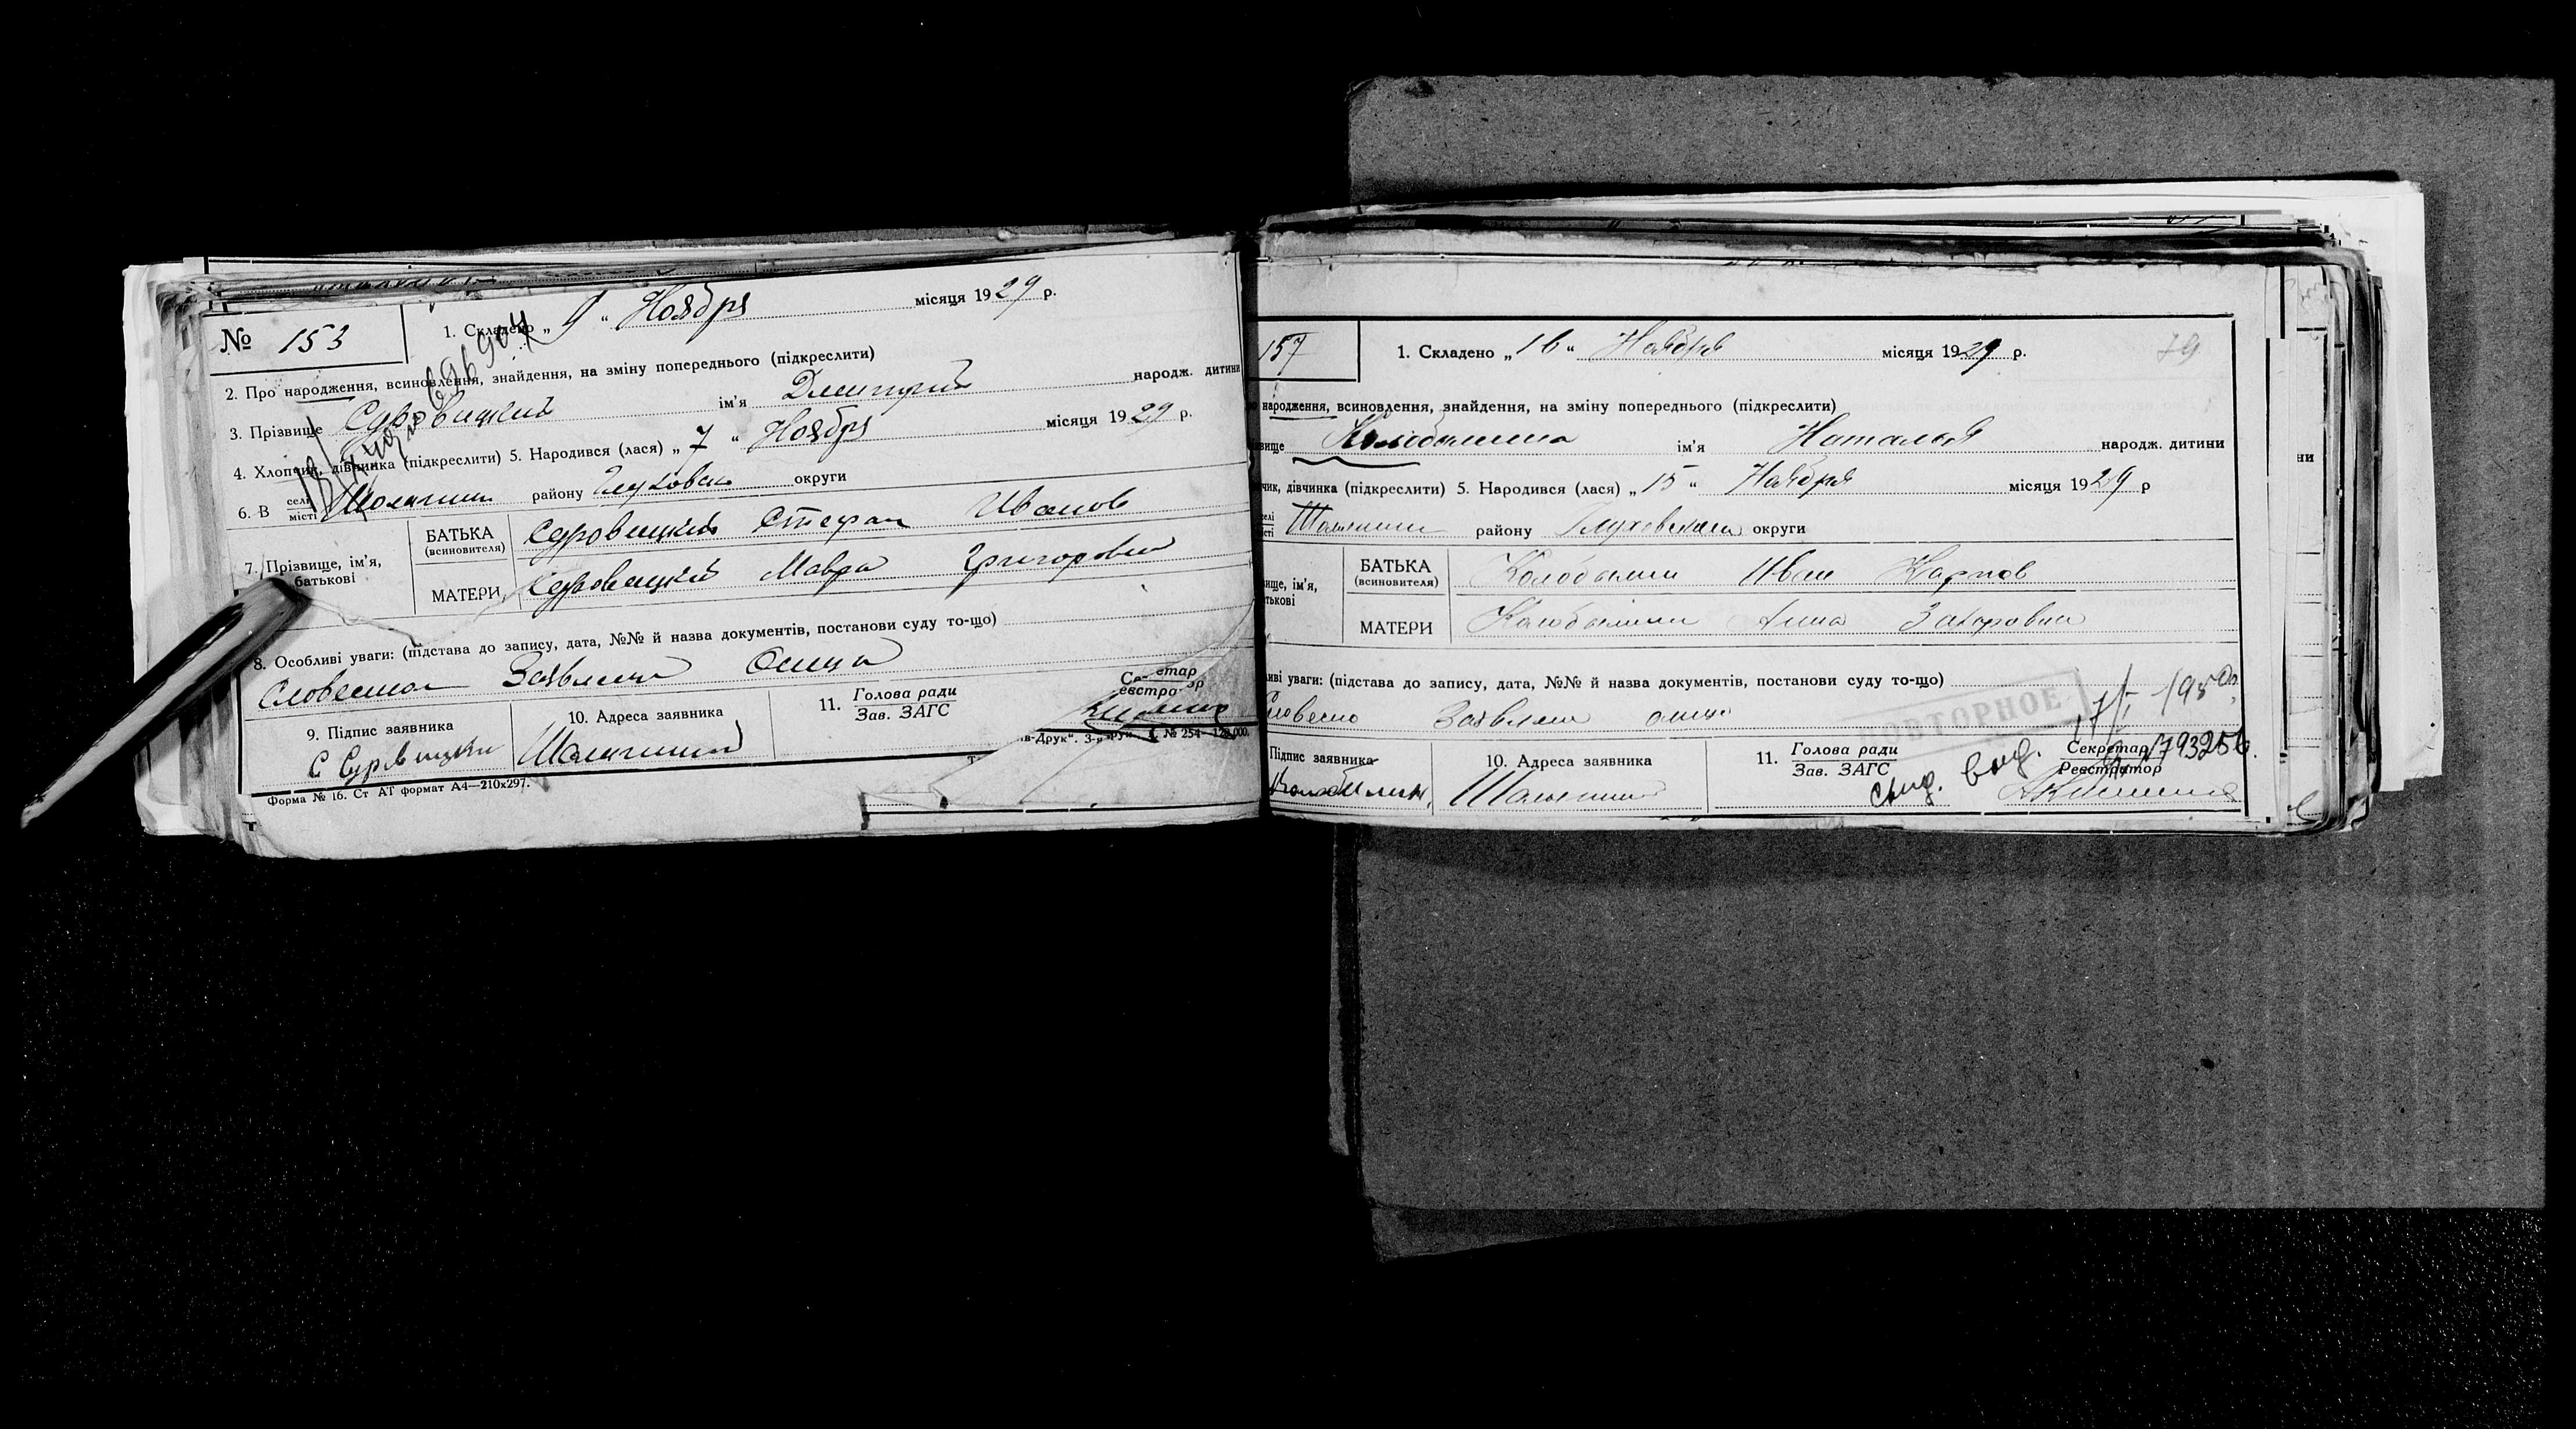 № 153
1. Складено „ 9 “ Ноября місяця 1929 р.
2. Про народження, всиновлення, знайдення, на зміну попереднього (підкреслити)
3. Прізвище Суровицкий ім'я Дмитрий народж. дитини
4. Хлопчик, дівчинка (підкреслити) 5. Народився (лася) „ 7 “ Ноября місяця 1929 р.
6. В селі місті Шалыгин району Глуховск округи
7. Прізвище, ім'я, батькові
БАТЬКА (всиновителя) Суровицкий Стефан Иванов
МАТЕРИ Суровицкий Мавра Григоровна
8. Особливі уваги: (підстава до запису, дата, №№ й назва документів, постанови суду то-що)
Словесное Заявление Отца
9. Підпис заявника
С Суровицки
10. Адреса заявника
Шалыгино
11. Голова ради
Зав. ЗАГС
Форма № 16. Ст АТ формат А4—210х297.
157
1. Складено „ 16 “ Ноября місяця 1929 р.
79
народження, всиновлення, знайдення, на зміну попереднього (підкреслити)
Колобылина ім'я Наталья народж. дитини
чик, дівчинка (підкреслити) 5. Народився (лася) „ 15 “ Ноября місяця 1929 р
Шалыгин району Глуховской округи
ім'я,
БАТЬКА (всиновителя) Колобылин Иван Карпов
МАТЕРИ Колобылин Анна Захаровна
уваги: (підстава до запису, дата, №№ й назва документів, постанови суду то-що)
Словесно Заявлен отцо
ПОВТОРНОЕ
17/I 1950г.
Підпис заявника
Колобылин
10. Адреса заявника
Шалыгино
11. Голова ради
Зав. ЗАГС
Секретар
Реєстратор
свид. выд.
793256.